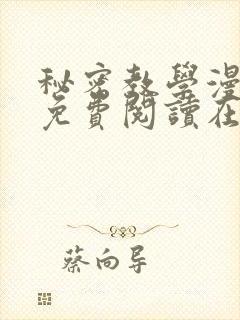 秘密教學漫
免費閱讀在
蔡向导